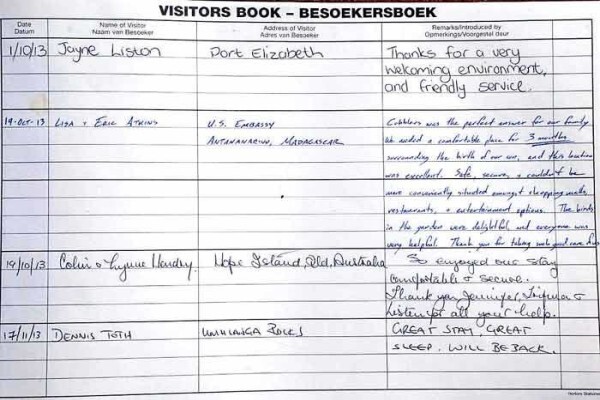 VISITORS BOOK – BESOEKERSBOEK
Date
Datum
Name of Visitor
Naam van Besoeker
Address of Visitor
Adres van Besoeker
Remarks/Introduced by
Opmerkings/Voorgestel deur
1/10/13 Jayne Liston Port Elizabeth Thanks for a very
welcoming environment,
and friendly service.
19-OCT-13 LISA + ERIC ATKINS U.S. EMBASSY Cobblers was the perfect answer for our family.
ANTANANARIVO, MADAGASCAR We needed a comfortable place for 3 months
surrounding the birth of our son, and this location
was excellent. Safe, secure, + couldn't be
more conveniently situated amongst shopping malls,
restaurants, + entertainment options. The birds
in the garden were delightful, and everyone was
very helpful. Thank you for taking such good care
19/10/13 Colin & Lynne Hendry. Hope Island, Qld, Australia So enjoyed our stay
comfortable & secure.
Thank you Jennifer, &
for all your help.
17/11/13 DENNIS TOTH UMHLANGA ROCKS GREAT STAY. GREAT
SLEEP. WILL BE BACK.